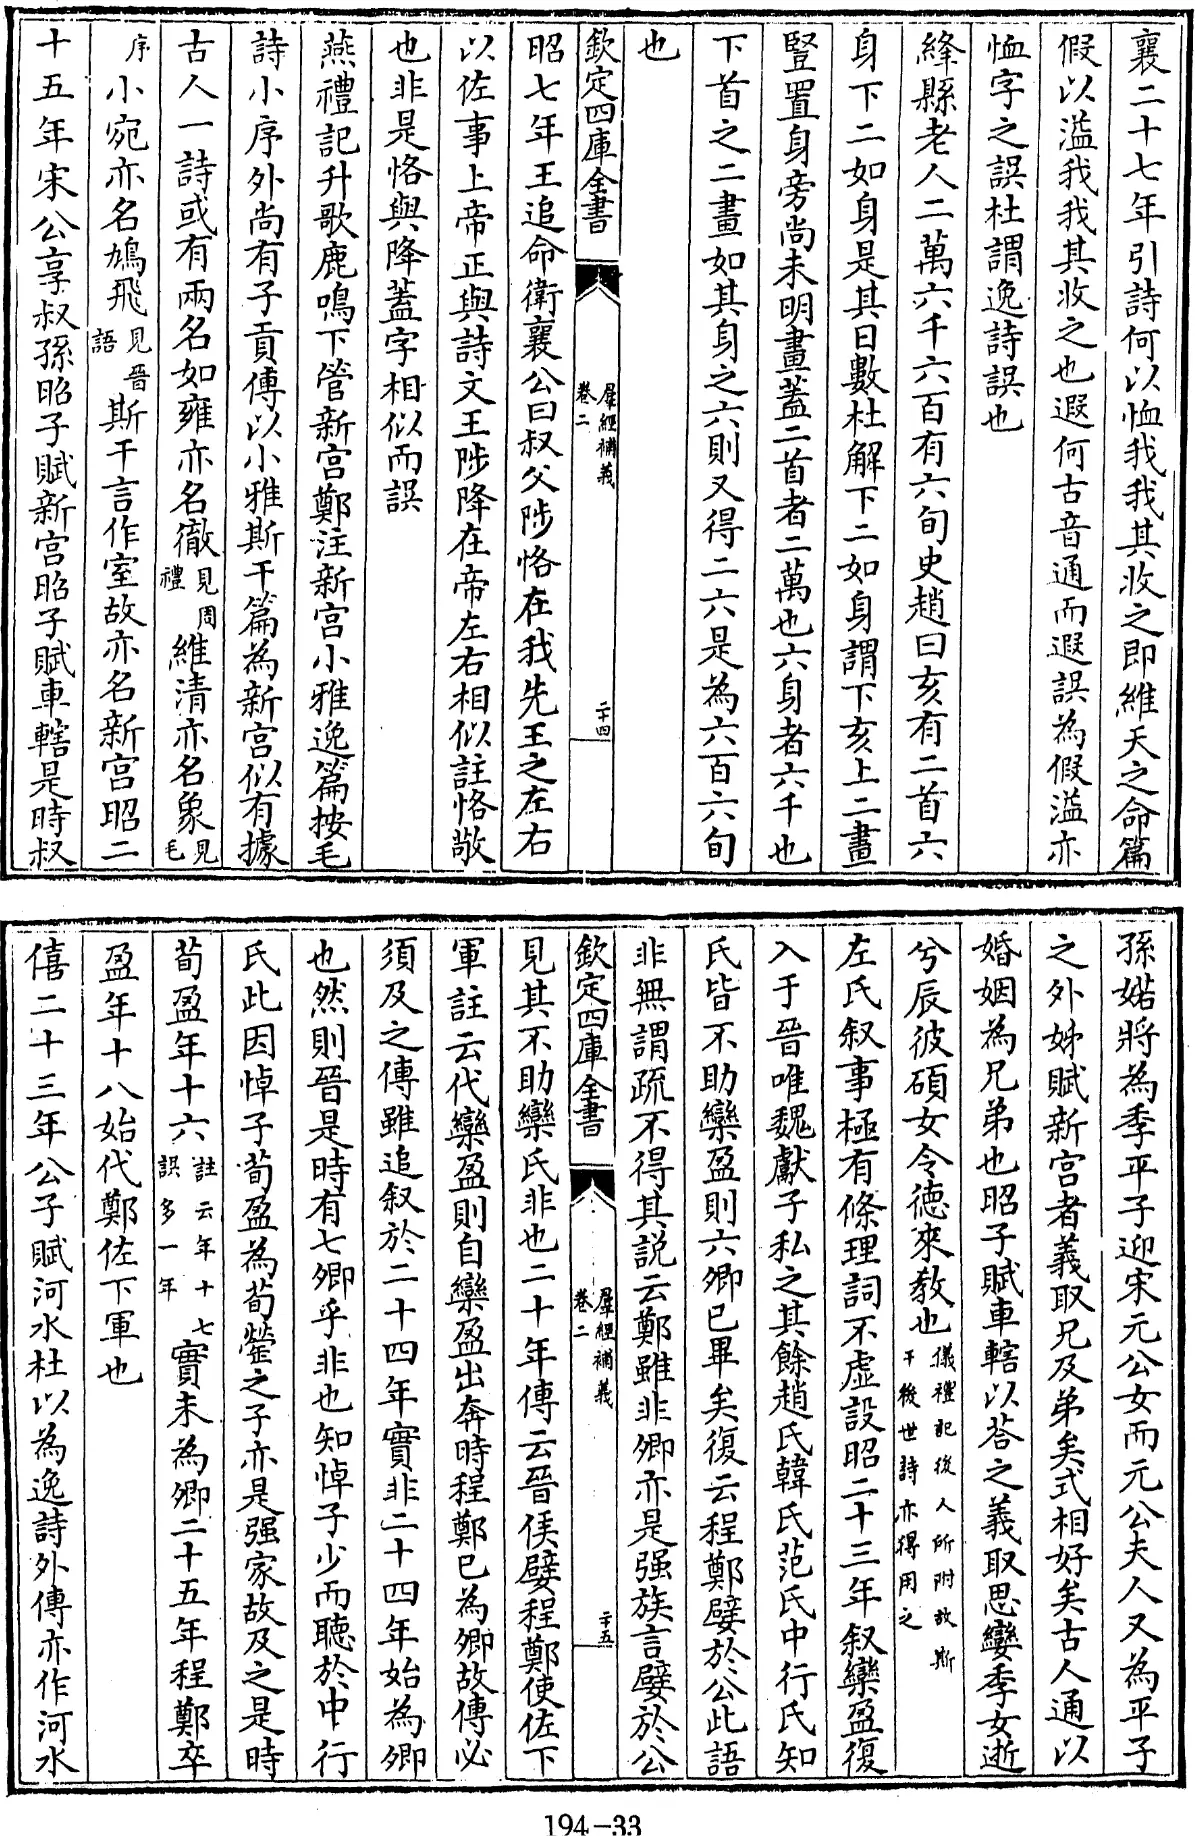 襄二十七年引詩何以恤我我其收之即維天之命篇
假以溢我我其收之也遐何古音通而遐誤為假溢亦
恤字之誤杜謂逸詩誤也
絳縣老人二萬六千六百有六旬史趙曰亥有二首六
身下二如身是其日數杜解下二如身謂下亥上二畫
豎置身旁尚未明畫蓋二首者二萬也六身者六千也
下首之二畫如其身之六則又得二六是為六百六旬
也
欽定四庫全書
羣經補義
卷二
二十四
昭七年王追命衛襄公曰叔父陟恪在我先王之左右
以佐事上帝正與詩文王陟降在帝左右相似註恪敬
也非是恪與降蓋字相似而誤
燕禮記升歌鹿鳴下管新宫鄭注新宫小雅逸篇按毛
詩小序外尚有子貢傳以小雅斯干篇為新宫似有據
古人一詩或有兩名如雍亦名徹見周禮維清亦名象見毛
序小宛亦名鳩飛見晉語斯干言作室故亦名新宫昭二
十五年宋公享叔孫昭子賦新宫昭子賦車轄是時叔
孫婼將為季平子迎宋元公女而元公夫人又為平子
之外姊賦新宫者義取兄及弟矣式相好矣古人通以
婚姻為兄弟也昭子賦車轄以答之義取思孌季女逝
兮辰彼碩女令德來教也儀禮記後人所附故斯干後世詩亦得用之
左氏叙事極有條理詞不虚設昭二十三年叙欒盈復
入于晉唯魏獻子私之其餘趙氏韓氏范氏中行氏知
氏皆不助欒盈則六卿已畢矣復云程鄭嬖於公此語
非無謂疏不得其説云鄭雖非卿亦是强族言嬖於公
欽定四庫全書
羣經補義
卷二
二十五
見其不助欒氏非也二十年傳云晉侯嬖程鄭使佐下
軍註云代欒盈則自欒盈出奔時程鄭已為卿故傳必
須及之傳雖追叙於二十四年實非二十四年始為卿
也然則晉是時有七卿乎非也知悼子少而聽於中行
氏此因悼子荀盈為荀罃之子亦是强家故及之是時
荀盈年十六註云年十七誤多一年實未為卿二十五年程鄭卒
盈年十八始代鄭佐下軍也
僖二十三年公子賦河水杜以為逸詩外傳亦作河水
194-33